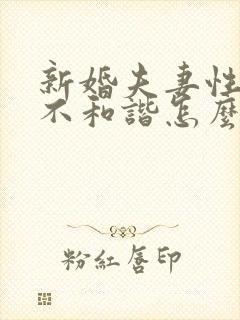 新婚夫妻性
不和諧怎麼
粉紅唇印